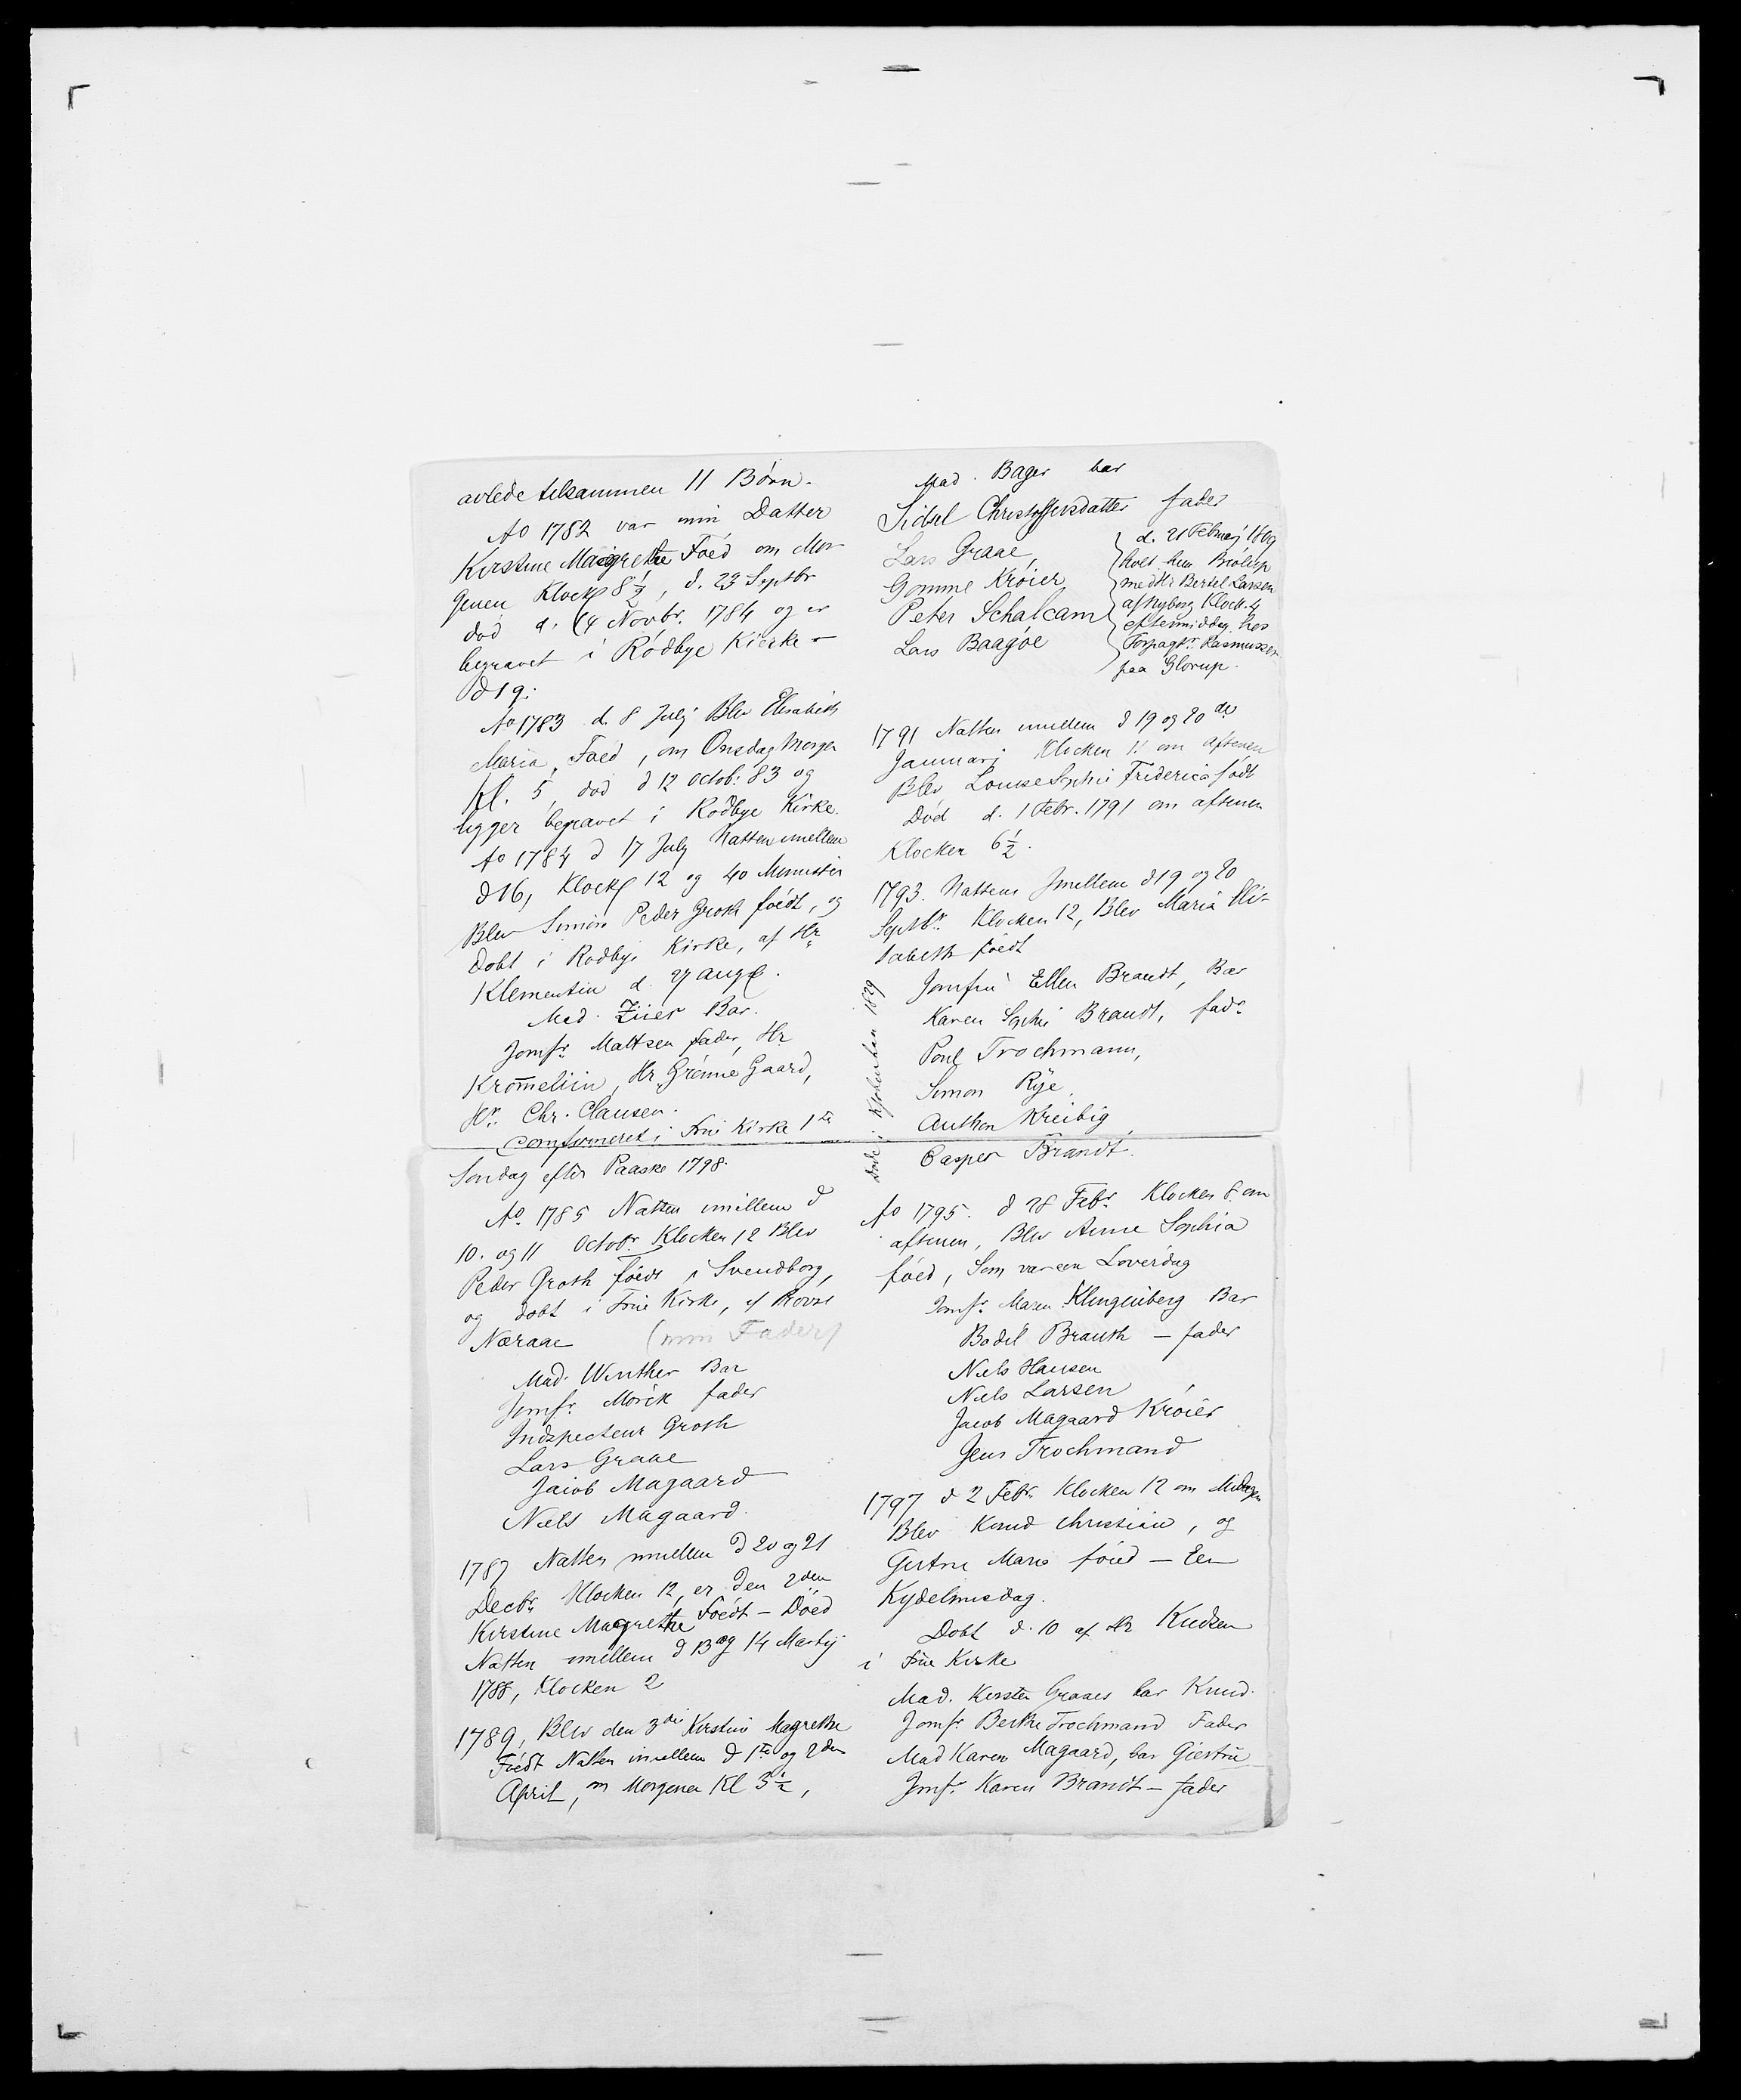 avlede tilsammen 11 Börn.
Ao 1782 var min Datter
Kirstine Margrethe Föed om Mor-
genen Klocke 8½, d. 23 Septbr
död d. 14 Novbr. 1784 og er
begravet i Rödbye Kierke -
d 19:
Ao 1783 d. 8 Julj Blev Elisabeth
Maria, Föed, om Onsdag Morgen
Kl. 5, död d 12 octob: 83 og
ligger begravet i Rödbye Kirke.
Ao 1784 d 17 July Natten imellem
d 16, Klock 12 og 40 Minutter
Blev Simon Peder Groth föedt, og
Döbt i Rodbye Kirke, af Hr
Klementin d. 27 aug.
Mad. Ziier Bar.
Jomfr. Maltsen fader, Hr
Krom̄eliin, Hr. Grönne Gaard,
Hr. Chr. Clausen.
Comfirmeret i Frue Kirke 1te
Sondag efter Paaske 1798.
Ao. 1785 Natten imillem d
10. og 11 Octobr. Klocken 12 Blev
Peder Groth föedt i Svendborg,
og döbt i Frue Kirke, af Provst
Næraae (min Fader)
Mad. Winther Bar
Jomfr. Mörck fader
Indspecteur Groth
Lars Graae
Jacob Magaard
Niels Magaard.
1787 Natten imellem d 20 og 21
Decbr. Klocken 12, er den 2den
Kirstine Magrethe Föedt - Döed
Natten imellem d 13 og 14 Martij
1788, Klocken 2
1789, Blev den 3die Kirstine Magrethe
Föedt Natten imellem d 1te og 2den
April, om Morgenen Kl 3½,
Mad. Bager bar
Sidsel Christoffersdatter fader
Lars Graae,
Gomme Kröier
Peter Schalcam
Lars Baagöe
d. 21 Februarj 1809
holt hun Brölup
med Hr Bertel Larsen
af Nyborg Klock. 4
eftermiddag hos
Forpagtr. Rasmussen
paa Glorup.
1791 Natten imellem d 19 og 20de
Januarj Klocken 11 om aftenen
Blev Louise Sophie Friderica födt
Död d. 1 Febr. 1791 om aftenen
Klocken 6½.
1793. Natten Jmellem d 19 og 20
Septbr. Klocken 12, Blev Maria Eli-
sabeth föedt
Jomfru Ellen Brandt, Bar
Karen Sophi Brandt, fadr.
Poul Trochmann,
Simon Rye,
Anthon Kreibig,
Casper Brandt.
döde i Kjöbenhavn 1829
Ao 1795. d 28 Febr. Klocken 8 om
aftenen, Blev Anne Sophia
föed, Som var een Löverdag
Jomfr. Maren Klingenberg Bar
Bodil Brauth - fader
Niels Hansen
Niels Larsen
Jacob Magaard Kröier
Jens Trochmand
1797 d 2 Febr. Klocken 12 om Middagen
Blev Knud Christian, og
Giertru Marie föied - Een
Kydelmisdag.
Döbt d. 10 af Hr Kudsen
i Frue Kirke
Mad. Kirsten Graaes bar Knud.
Jomfr. Berthe Trochmand Fader
Mad Karen Magaard, bar Giertru
Jomfr. Karen Brandt - fader